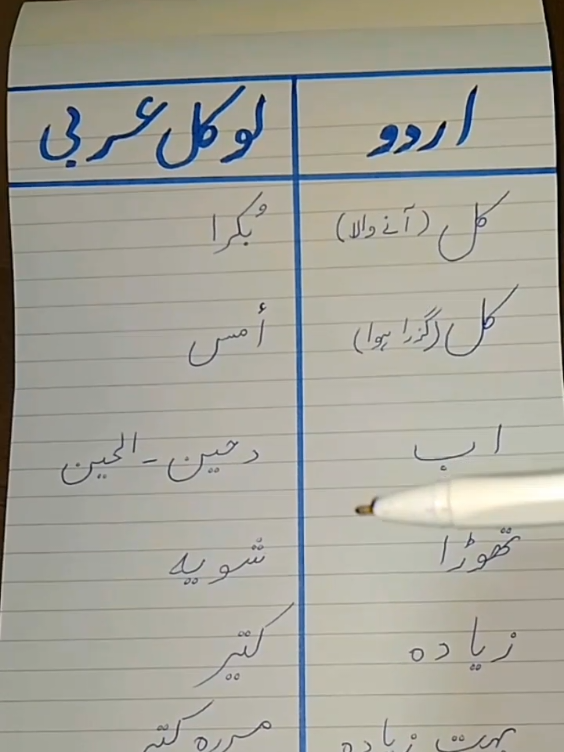 اردو لوکل عربی
کل (آنے والا) بُکرا
کل (گزرا ہوا) أمس
اب دحین - الحین
تھوڑا شویه
زیادہ کتیر
بہت زیادہ مرره کتیر